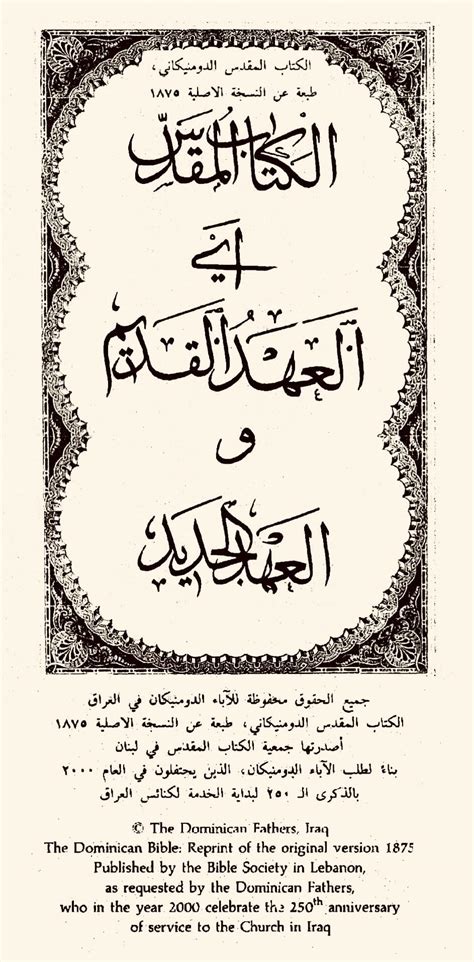 الكتاب المقدس الدومنيكاني،
طبعة عن النسخة الاصلية ١٨٧٥
الكتاب المقدّس
اي
العهد القديم
و
العهد الجديد
جميع الحقوق محفوظة للآباء الدومنيكان في العراق
الكتاب المقدس الدومنيكاني، طبعة عن النسخة الاصلية ١٨٧٥
أصدرتها جمعية الكتاب المقدس في لبنان
بناءً لطلب الآباء الدومنيكان، الذين يحتفلون في العام ٢٠٠٠
بالذكرى الـ ٢٥٠ لبداية الخدمة لكنائس العراق
© The Dominican Fathers, Iraq
The Dominican Bible: Reprint of the original version 1875
Published by the Bible Society in Lebanon,
as requested by the Dominican Fathers,
who in the year 2000 celebrate the 250th anniversary
of service to the Church in Iraq